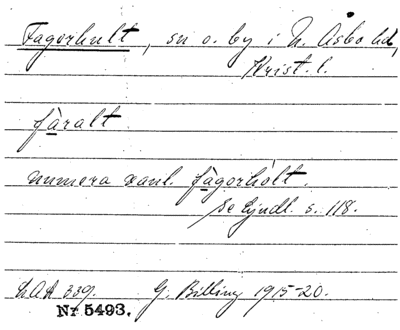 Fagerhult, sn o. by i N. Åsbo hd,
Krist. l.
fàralt
numera vanl. fàgorhòlt.
Se Ljudl. s. 118.
LAA 339. G. Billing 1915-20.
Nr 5493.